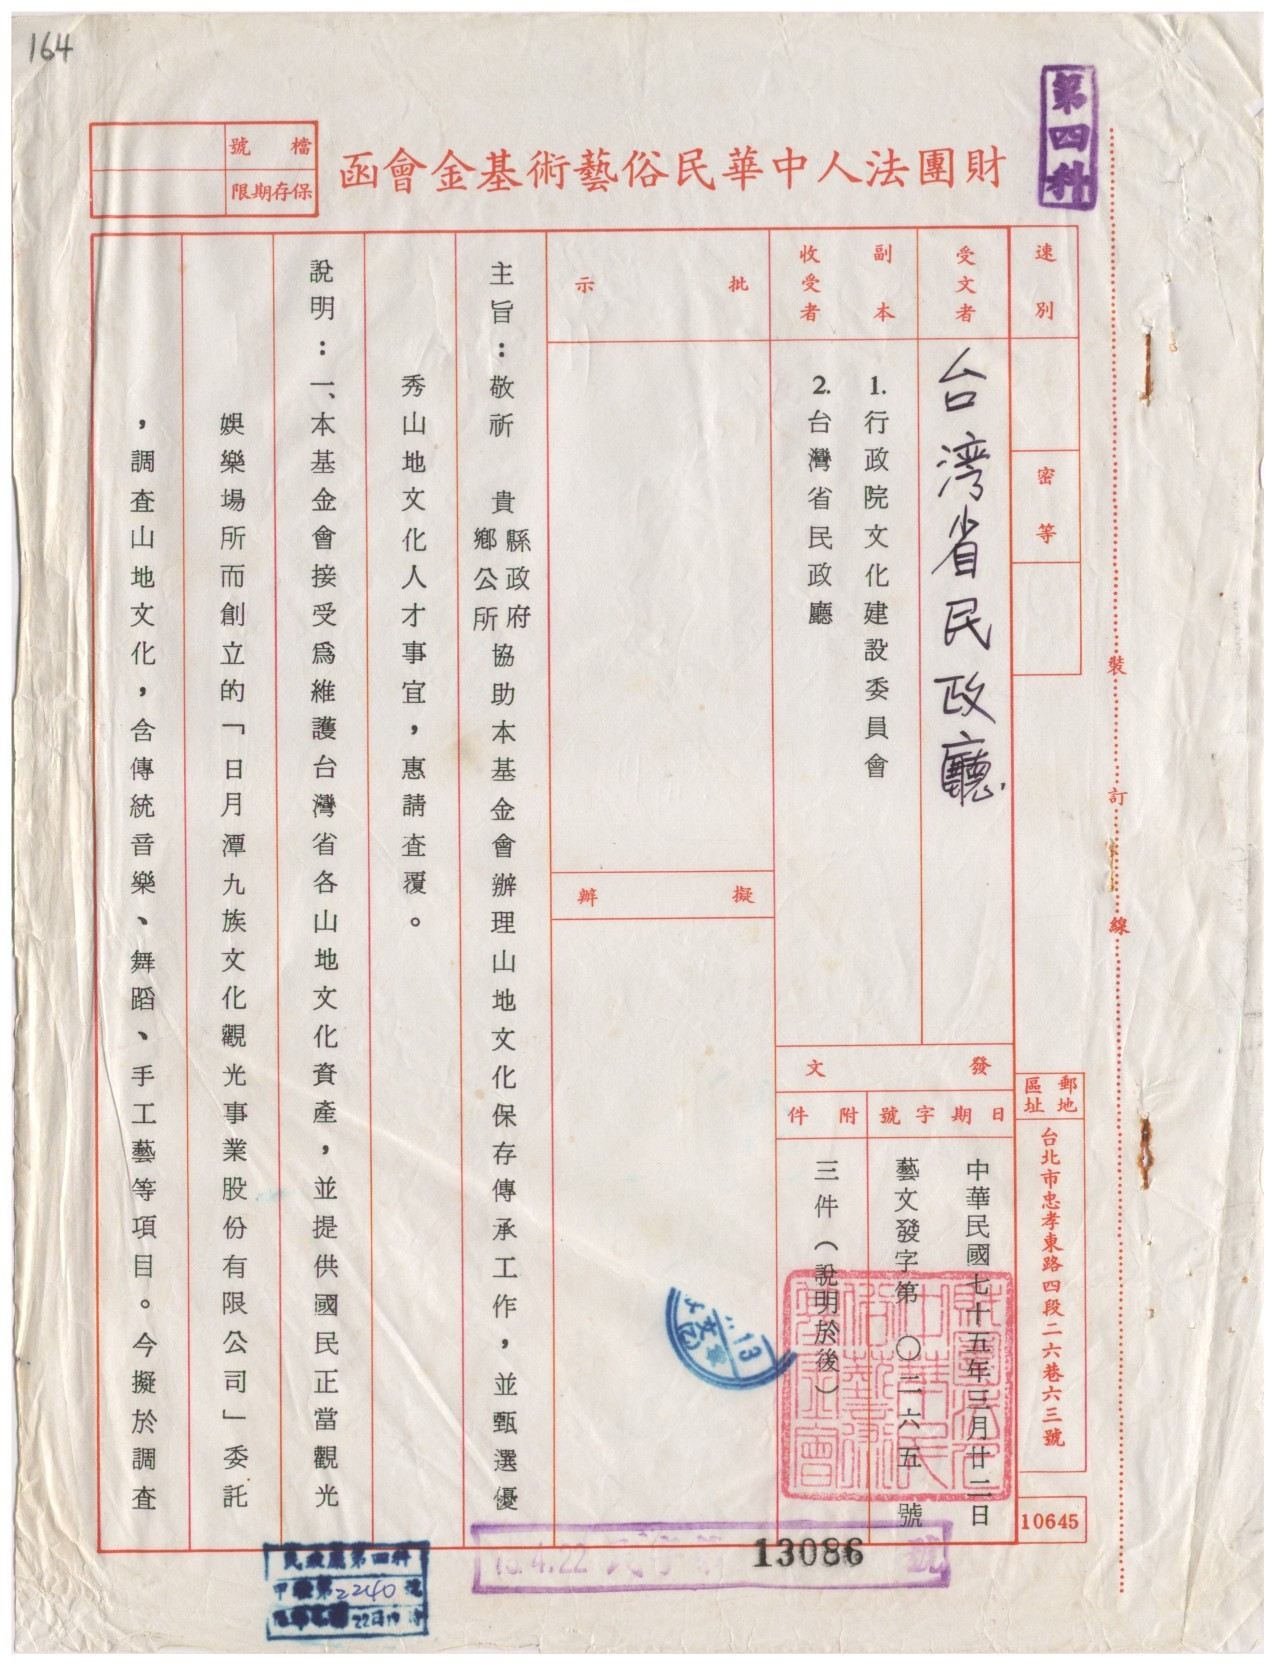 164
第四科
財團法人中華民俗藝術基金會函
檔號
保存期限
速別
密等
受文者
台湾省民政廳
副本
收受者
1.行政院文化建設委員會
2.台灣省民政廳
批示
擬辦
郵地
區址
台北市忠孝東路四段二六巷六三號
10645
發文
日期
中華民國七十五年三月廿二日
字號
藝文發字第〇二六五號
附件
三件（說明於後）
主旨：敬祈　貴縣政府鄉公所協助本基金會辦理山地文化保存傳承工作，並甄選優
秀山地文化人才事宜，惠請查覆。
說明：一、本基金會接受為維護台灣省各山地文化資產，並提供國民正當觀光
娛樂場所而創立的「日月潭九族文化觀光事業股份有限公司」委託
，調查山地文化，含傳統音樂、舞蹈、手工藝等項目。今擬於調查
裝訂線
13
文
75.4.22
13086
號
民政廳第四科
2240號
22日